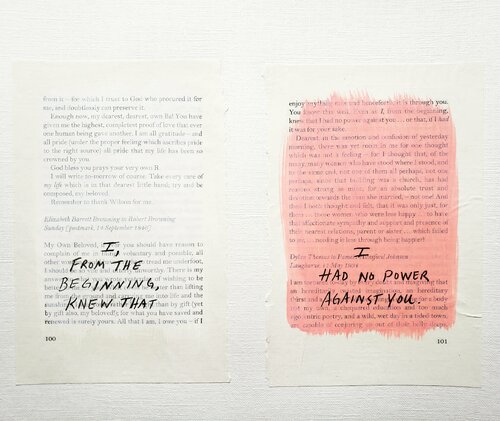 from it – for which I trust to God who procured it for
me, and doubtlessly can preserve it.
Enough now, my dearest, dearest, own Ba! You have
given me the highest, completest proof of love that ever
one human being gave another. I am all gratitude – and
all pride (under the proper feeling which ascribes pride
to the right source) all pride that my life has been so
crowned by you.
God bless you prays your very own R.
I will write to-morrow of course. Take every care of
my life which is in that dearest little hand; try and be
composed, my beloved.
Remember to thank Wilson for me.
Elizabeth Barrett Browning to Robert Browning
Sunday [postmark, 14 September 1846]
My Own Beloved, if you should have reason to
complain of me in
I,
FROM THE
BEGINNING,
KNEW THAT
renewed is surely yours. All that I am, I owe you – if I
100
enjoy anything now and henceforth, it is through you.
You know this well. Even as I, from the beginning,
knew that I had no power against you ... or that, if I had
it was for your sake.
Dearest, in the emotion and confusion of yesterday
morning, there was yet room in me for one thought
which was not a feeling – for I thought that, of the
many, many women who have stood where I stood, and
to the same end, not one of them all perhaps, not one
perhaps, since that building was a church, has had
reasons strong as mine, for an absolute trust and
devotion towards the man she married, – not one! And
then I both thought and felt, that it was only just, for
them ... those women who were less happy ... to have
that affectionate sympathy and support and presence of
their nearest relations, parent or sister ... which failed
to me, ... needing it less through being happier!
Dylan Thomas to Pamela Hansford Johnson
I
HAD NO POWER
AGAINST YOU.
101